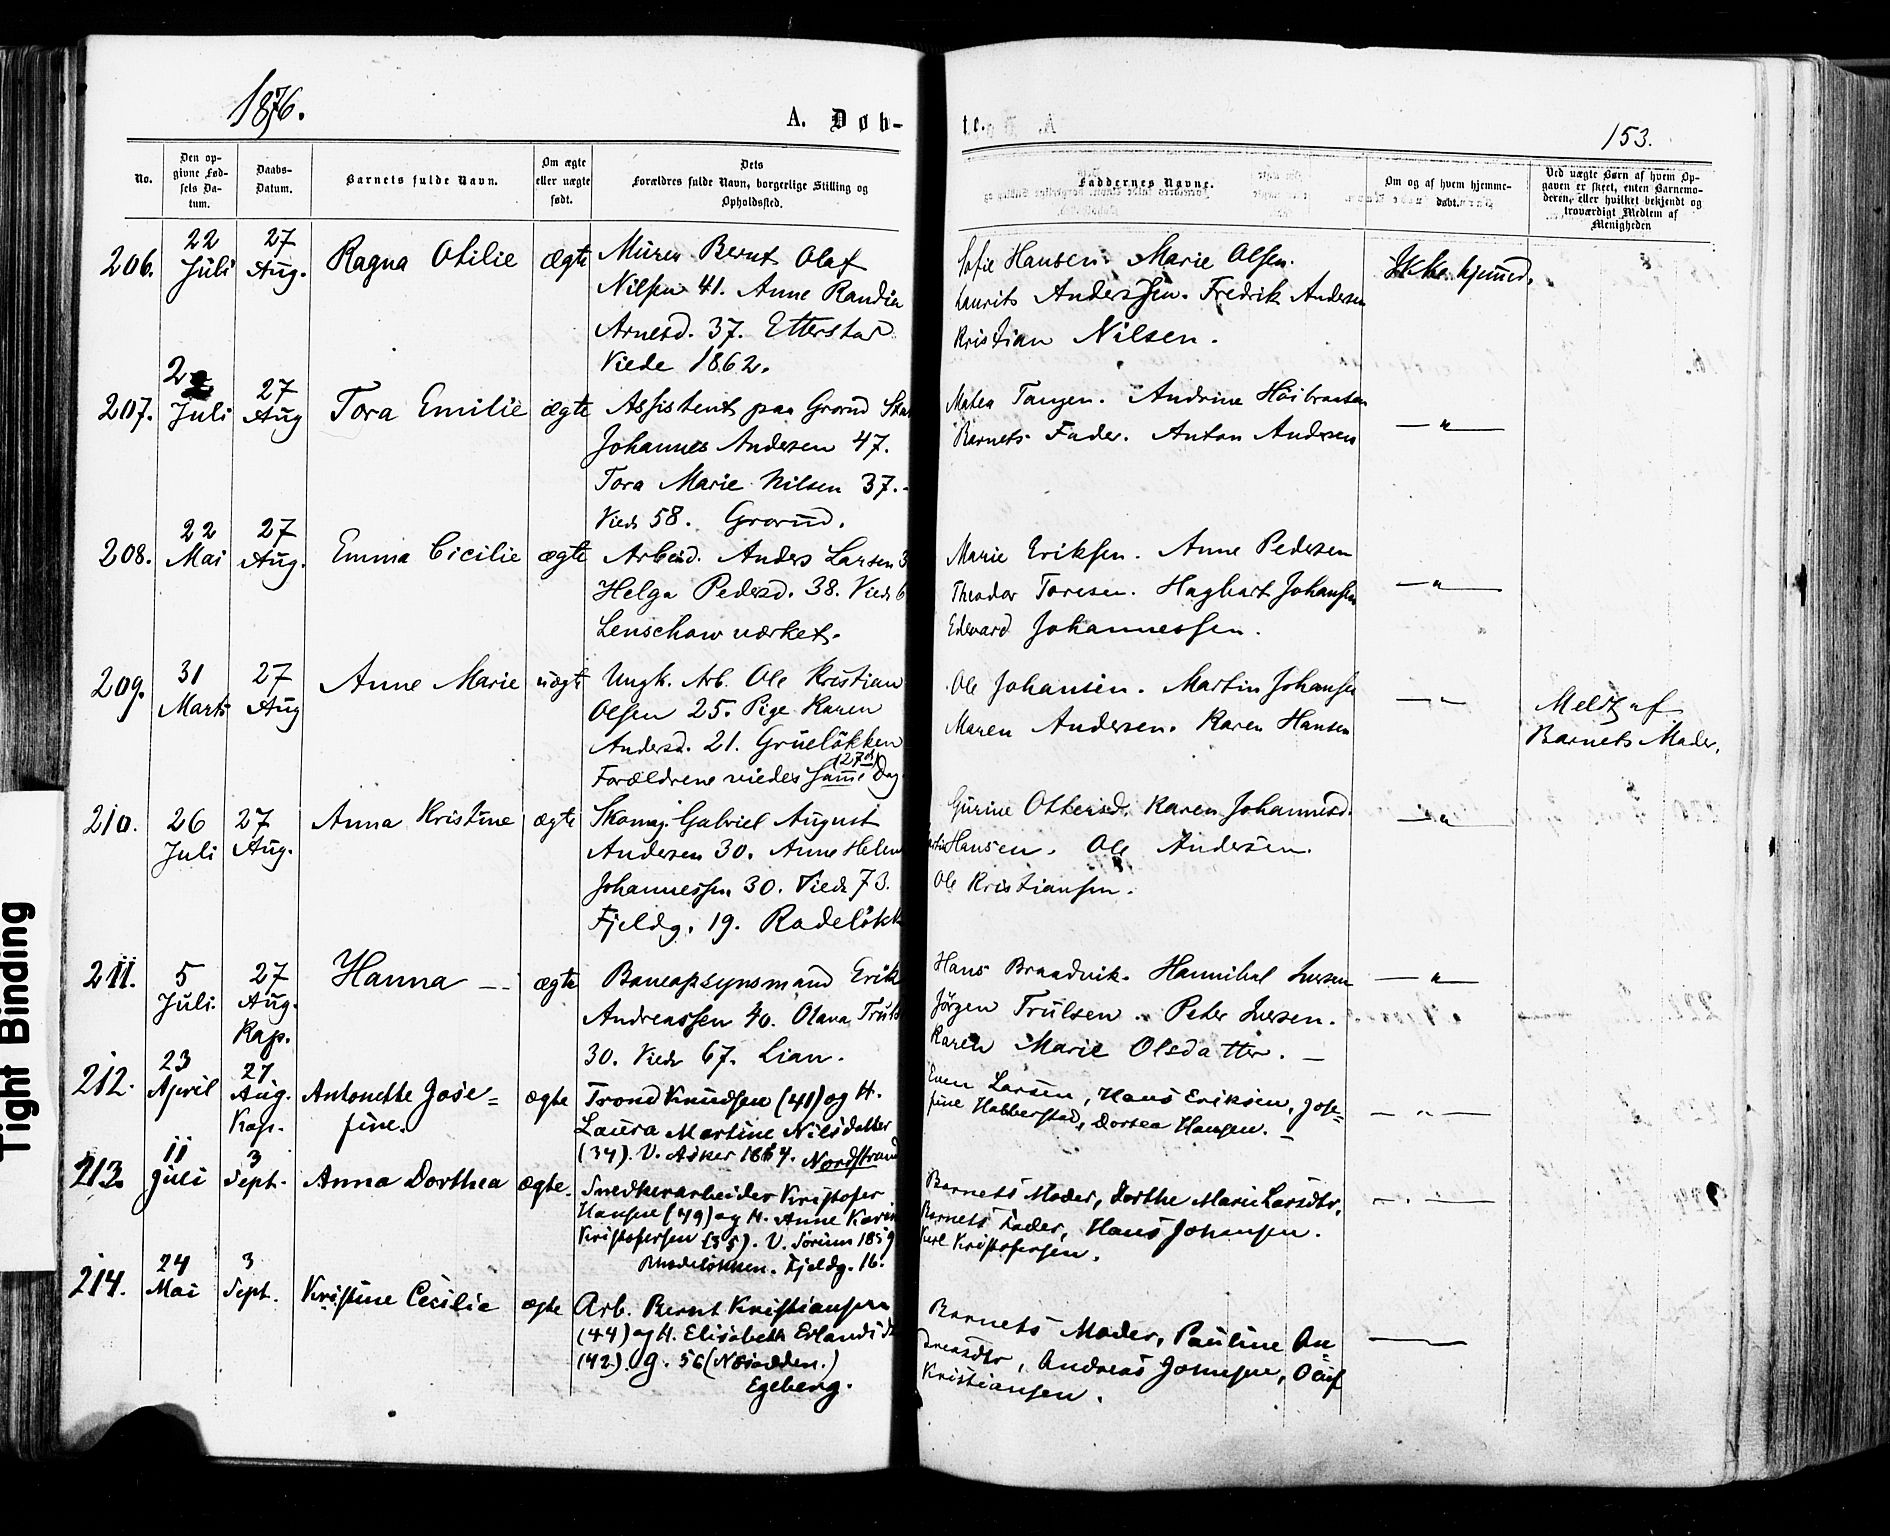 1876.
A. Døb-
te.
153.
No.
Den op-
givne Fød-
sels Da-
tum.
Daabs-
Datum.
Barnets fulde Navn.
Om ægte
eller uægte
født.
Dets
Forældres fulde Navn, borgerlige Stilling og
Opholdssted.
Faddernes Navne.
Om og af hvem hjemme-
døbt.
Ved uægte Børn af hvem Op-
gaven er skeet, enten Barnemo-
deren, eller hvilket bekjendt og
troværdigt Medlem af
Menigheden
206.
22
Juli
27
Aug.
Ragna Otilie
ægte
Murer Bernt Olaf
Nilsen 41. Anne Randia
Arnesd. 37. Etterstad
Viede 1862.
Sofie Hansen. Marie Olsen.
Laurits Anderssen. Fredrik Andersen
Kristian Nilsen.
Ikke hjemmed.
207.
2
Juli
27
Aug
Tora Emilie
ægte
Assistent paa Grorud
Johannes Andersen 47.
Tora Marie Nilsen 37.
Viede 58. Grorud.
Matea Tangen. Andrine Høibraaten
Barnets Fader. Anton Andersen
— " —
208.
22
Mai
27
Aug.
Emma Cicilie
ægte
Arbeid. Anders Larsen 3
Helga Pedersd. 38. Viede 6
Lenschow værket.
Marie Eriksen. Anne Pedersen
Theodor Toresen. Hagbart Johansen
Edevard Johannessen.
— " —
209.
31
Marts
27
Aug
Anne Marie
uægte
Ungk. Arb. Ole Kristian
Olsen 25. Pige Karen
Andersd. 21. Grueløkken
Forældrene viedes samme (27de) Dag
Ole Johansen. Martin Johansen
Maren Andersen. Karen Hansen
— " —
Meldt af
Barnets Moder.
210.
26
Juli
27
Aug.
Anna Kristine
ægte
Skomag. Gabriel August
Andersen 30. Anne Helene
Johannessen 30. Viede 73.
Fjeldg. 19. Rodeløkk
Gurine Ottersd. Karen Johannesd.
Hansen. Ole Andersen.
Ole Kristiansen.
— " —
211.
5
Juli.
27
Aug.
Kap.
Hanna —
ægte
Baneopsynsmand Erik
Andreassen 40. Olava Truls
30. Viede 67. Lian.
Hans Braadvik. Hannibal Iversen
Jørgen Trulsen. Peter Iversen.
Karen Marie Olsdatter. —
— " —
212.
23
April
27
Aug.
Kap.
Antonette Jose=
fine.
ægte
Trond Knudsen (41) og H.
Laura Martine Nilsdatter
(34). V. Asker 1864. Nordstrand
Even Larsen, Hans Eriksen, Jose=
fine Habberstad, Dortea Hansen. —
— " —
213.
11
Juli
3
Sept.
Anna Dorthea
ægte.
Snedkerarbeider Kristofer
Hansen (49) og H. Anne Karin
Kristofersen (35). V. Sørum 1859
Rhodeløkken. Fjeldg. 16.
Barnets Moder, Dorthe Marie Larsdtr,
Barnets Fader, Hans Johansen.
Karl Kristofersen.
— " —
214.
24
Mai
3
Sept.
Kristine Cecilie
ægte
Arb. Bernt Kristiansen
(44) og H. Elisabeth Erlandsd
(42). g. 56 (Næsodden.)
Egeberg.
Barnets Moder, Pauline An=
dreasdtr, Andreas Johnsen, Oluf
Kristiansen.
—
Tight Binding